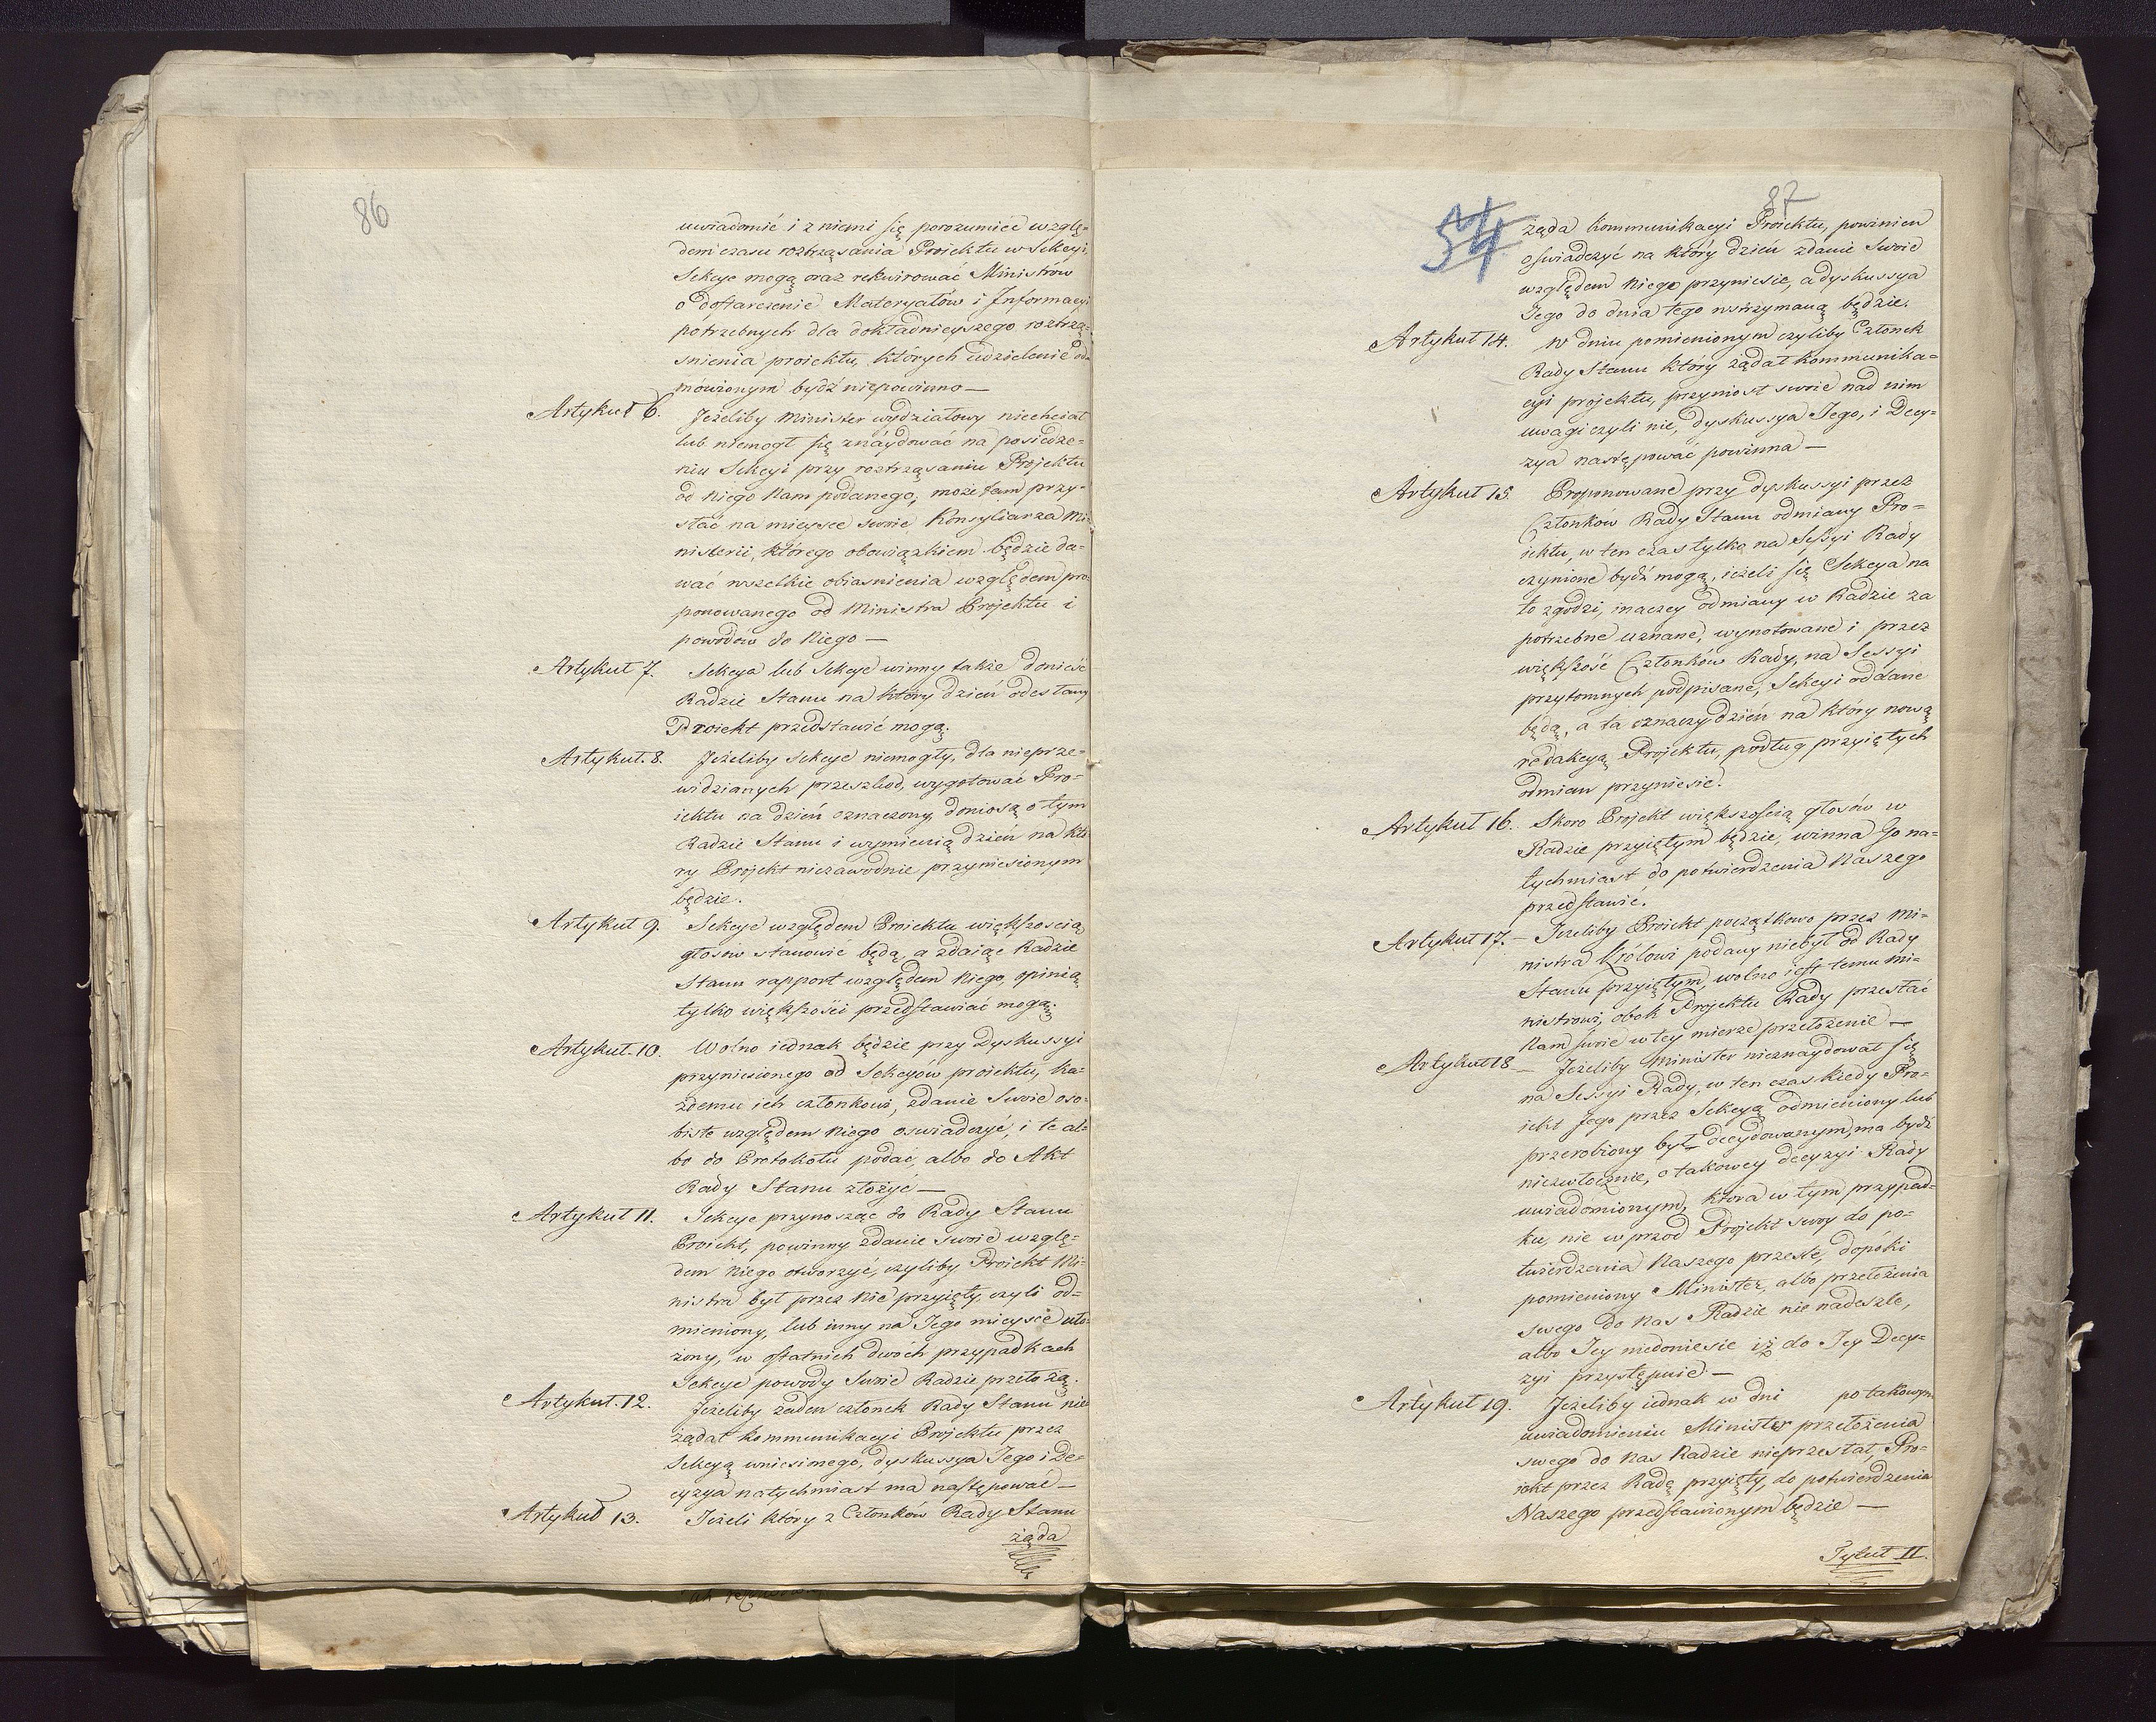 86
uwiadomić i z niemi się porozumieć wzglę-
dem czasu roztrząsania Proiektu w Sekcyi,
Sekcye mogą oraz rekwirować Ministrów
o dostarczenie Materyałów i Informacyi
potrzebnych dla dokładnieyszego roztrzą-
snienia proiektu, których udzielenie od-
mówionym bydź niepowinno —
Artykuł 6. Jeżeliby Minister wydziałowy niechciał
lub niemogł się znáydować na posiedze-
niu Sekcyi przy roztrząsaniu Projektu
od Niego Nam podanego, może tam przy-
słać na mieysce swoie Konsyliarza Mi-
nisterii, którego obowiązkiem będzie da-
wać wszelkie obiasnienia względem pro-
ponowanego od Ministra Projektu i
powodów do Niego —
Artykuł 7. Sekcya lub Sekcye winny także donieść
Radzie Stanu na który dzień odesłany
Proiekt przedstawić mogą.
Artykuł. 8. Jeżeliby Sekcye niemogły, dla nieprze-
widzianych przeszkod, wygotować Pro-
iektu na dzień oznaczony, doniosą o tym
Radzie Stanu i wymienią dzień na któ
ry Projekt niezawodnie przyniesionym
będzie.
Artykuł 9. Sekcye względem Proiektu większoscią
głosów stanowić będą, a zdaiąc Radzie
Stanu rapport względem Niego, opinią
tylko większości przedstawiać mogą.
Artykuł. 10. Wolno iednak będzie przy Dyskussyi
przyniesionego od Sekcyów proiektu, ka-
żdemu ich członkowi, zdanie Swoie oso-
biste względem Niego oswiadczyć, i te al-
bo do Protokołu podać, albo do Akt
Rady Stanu złożyć —
Artykuł 11. Sekcye przynosząc do Rady Stanu
Proiekt, powinny zdanie swoie wzglę-
dem Niego otworzyć, czyliby Proiekt Mi-
nistra był przez Nie przyięty, czyli od-
mieniony, lub inny na Jego mieysce uło-
żony, w ostatnich dwóch przypadkach
Sekcye powody Swoie Radzie przełożą.
Artykuł. 12. Jeżeliby żaden członek Rady Stanu nie
żądał kommunikacyi Projektu przez
Sekcyą wniesimego, dyskussya Jego i De-
cyzya natychmiast ma następować —
Artykuł 13. Jeżeli który z Członków Rady Stanu
żąda
87
żąda kommunikacyi Proiektu, powinien
oswiadczyć na który dzień zdanie Swoie
względem Niego przyniesie, a dyskussya
Jego do dnia tego wstrzymaną będzie.
Artykuł 14. W dniu pomienionym czyliby Członek
Rady Stanu który żądał kommunika-
cyi projektu, przyniosł swoie nad nim
uwagi czyli nie, dyskussya Jego, i Decy-
zya następować powinna —
Artykuł 15. Proponowane przy dyskussyi przez
Członków Rady Stanu odmiany Pro-
iektu, w ten czas tylko na Sessyi Rady
czynione bydź mogą, ieżeli się Sekcya na
to zgodzi, inaczey odmiany w Radzie za
potrzebne uznane, wynotowane i przez
większość Członków Rady, na Sessyi
przytomnych podpisane, Sekcyi oddane
będą, a ta oznaczy dzień na który nową
redakcyą Projektu, podług przyiętych
odmian przyniesie.
Artykuł 16. Skoro Projekt większością głosów w
Radzie przyiętym będzie, winna Go na-
tychmiast do potwierdzenia Naszego
przedstawić.
Artykuł 17. — Jeżeliby Proiekt początkowo przez Mi-
nistra Królowi podany niebył od Rady
Stanu przyiętym, wolno iest temu Mi-
nistrowi, obok Projektu Rady przesłać
Nam swoie w tey mierze przełożenie —
Artykuł 18 — Jeżeliby Minister nieznaydował się
na Sessyi Rady, w ten czas kiedy Pro-
iekt Jego przez Sekcyą odmieniony lub
przerobiony był decydowanym, ma bydź
niezwłocznie, o takowey decyzyi Rady
uwiadomionym, ktora w tym przypad-
ku, nie wprzod Projekt swoy do po-
twierdzenia Naszego prześle, dopóki
pomieniony Minister, albo przełożenia
swego do Nas Radzie nie nadeszle,
albo Jey niedoniesie iż do Jey Decy-
zyi przystępuie —
Artykuł 19. Jeżeliby iednak w dni po takowym
uwiadomieniu Minister przełożenia
swego do Nas Radzie nieprzesłał, Pro-
iekt przez Radę przyięty, do potwierdzenia
Naszego przedstawionym będzie —
Tytuł II.